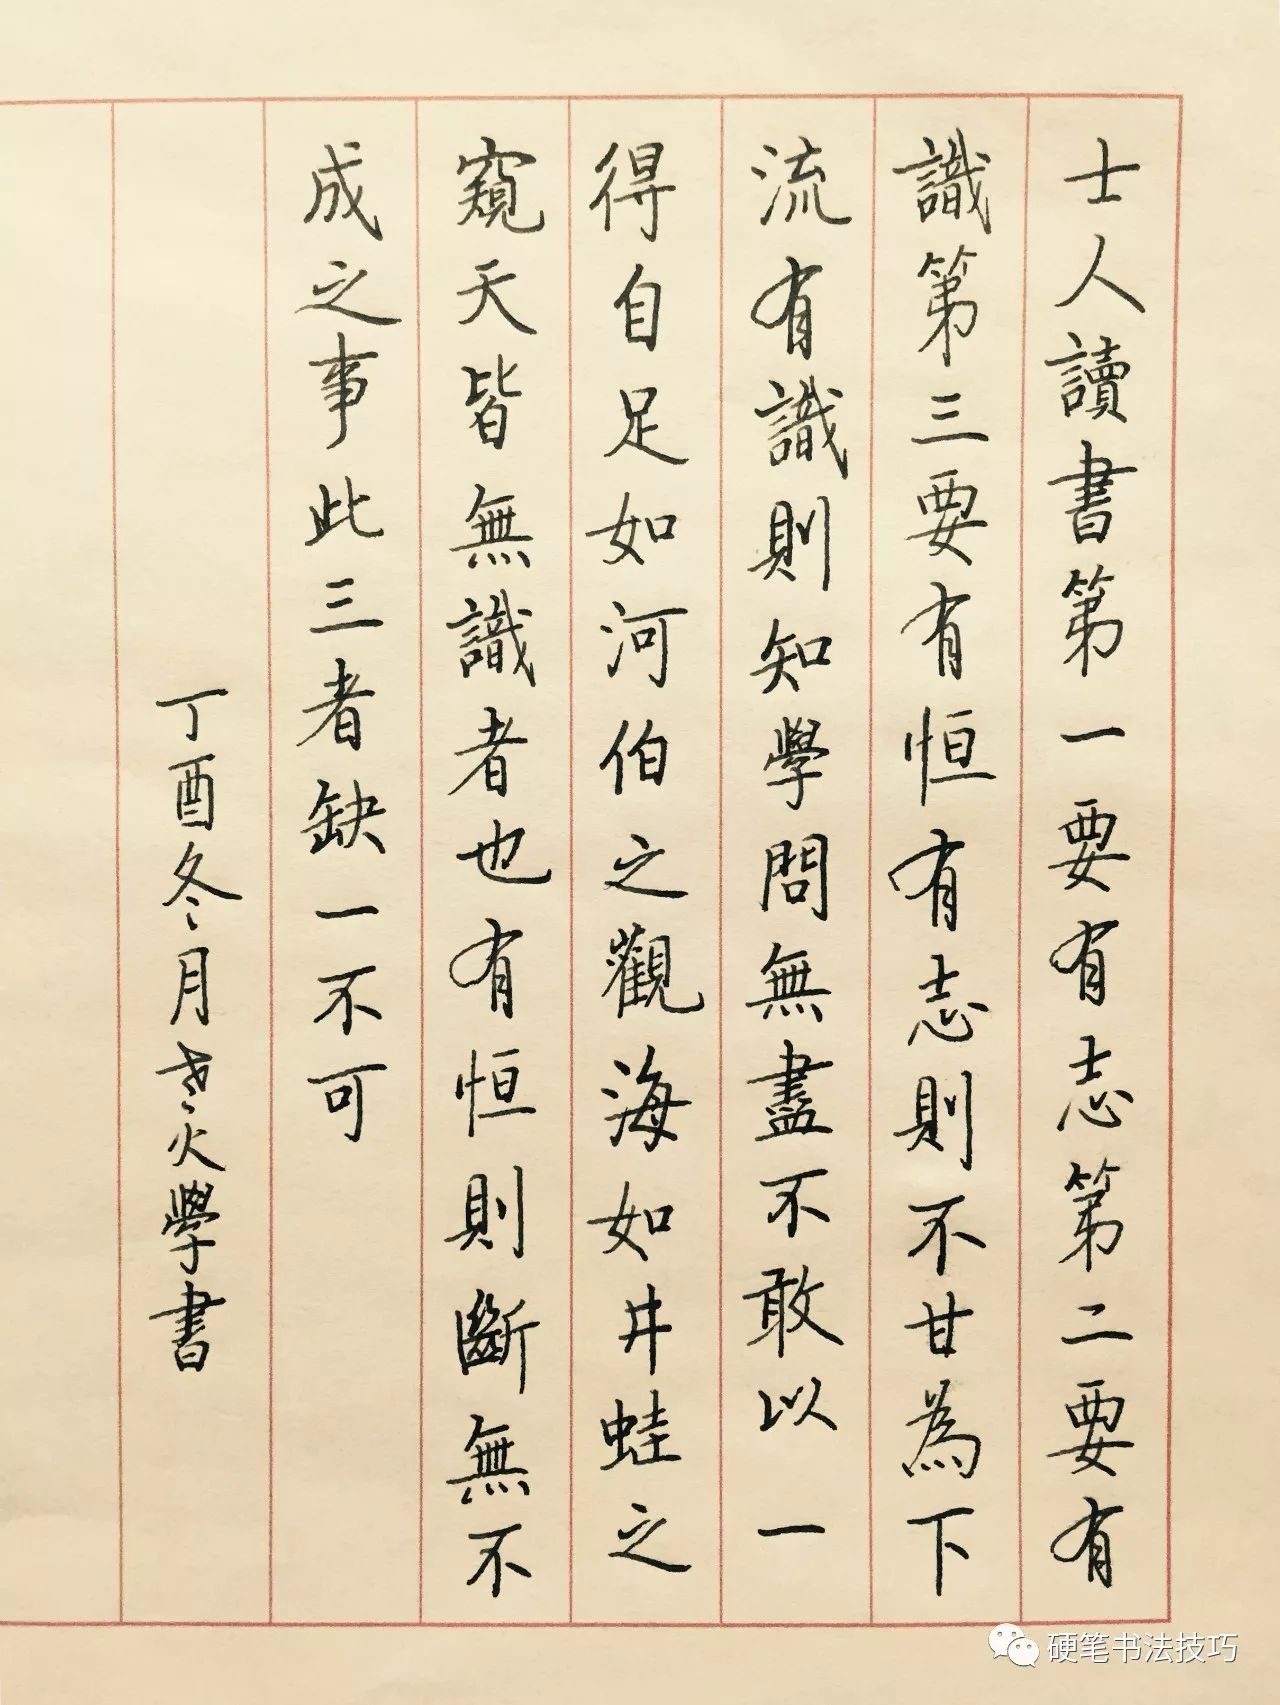 士人讀書第一要有志第二要有
識第三要有恒有志則不甘為下
流有識則知學問無盡不敢以一
得自足如河伯之觀海如井蛙之
窺天皆無識者也有恒則斷無不
成之事此三者缺一不可
丁酉冬月 火學書
硬笔书法技巧